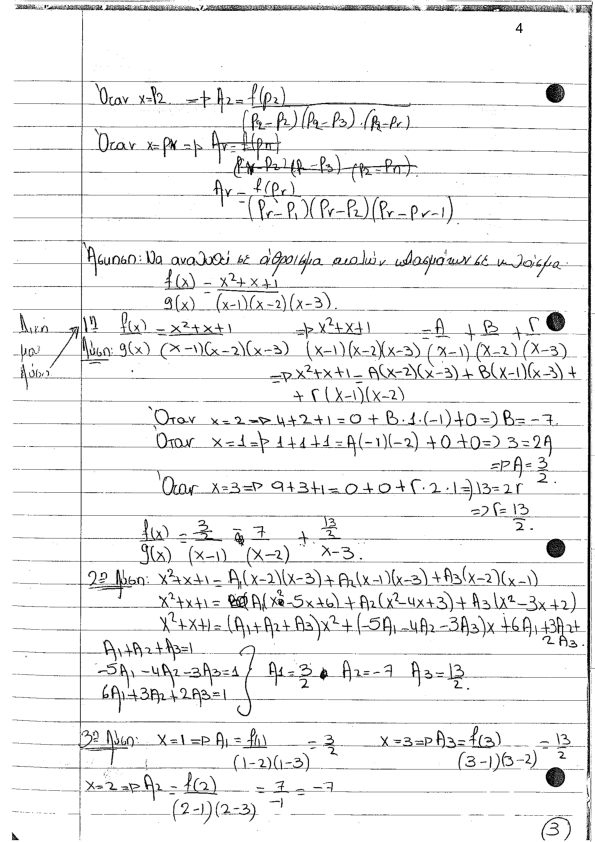 4
Όταν x=P2 => A2 = f(P2) / (P2-P2)(P2-P3).(P2-Pr)
Όταν x=Pr => Ar = f(Pn)
Ar = f(Pr) / (Pr-P1)(Pr-P2)(Pr-Pr-1)
Άσκηση: Να αναλυθεί σε άθροισμα απλών κλασμάτων σε κλάσμα.
f(x) / g(x) = x²+x+1 / (x-1)(x-2)(x-3).
Δική μου λύση
1η Λύση: f(x) / g(x) = x²+x+1 / (x-1)(x-2)(x-3) => x²+x+1 / (x-1)(x-2)(x-3) = A / (x-1) + B / (x-2) + Γ / (x-3)
=> x²+x+1 = A(x-2)(x-3) + B(x-1)(x-3) +
+ Γ(x-1)(x-2)
Όταν x=2 => 4+2+1=0+B·1·(-1)+0 => B=-7.
Όταν x=1 => 1+1+1=A(-1)(-2)+0+0 => 3=2A
=> A=3/2.
Όταν x=3 => 9+3+1=0+0+Γ·2·1 => 13=2Γ
=> Γ=13/2.
f(x) / g(x) = 3/2 / (x-1) - 7 / (x-2) + 13/2 / x-3.
2η Λύση: x²+x+1=A1(x-2)(x-3)+A2(x-1)(x-3)+A3(x-2)(x-1)
x²+x+1= A1(x²-5x+6)+A2(x²-4x+3)+A3(x²-3x+2)
x²+x+1=(A1+A2+A3)x²+(-5A1-4A2-3A3)x+6A1+3A2+
2A3.
A1+A2+A3=1
-5A1-4A2-3A3=1 } A1=3/2 A2=-7 A3=13/2.
6A1+3A2+2A3=1
3η Λύση: x=1 => A1 = f(1) / (1-2)(1-3) = 3/2 x=3 => A3 = f(3) / (3-1)(3-2) = 13/2
x=2 => A2 = f(2) / (2-1)(2-3) = 7/-1 = -7
(3)